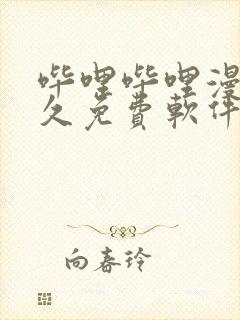 哔哩哔哩漫
久免费軟件
向春玲